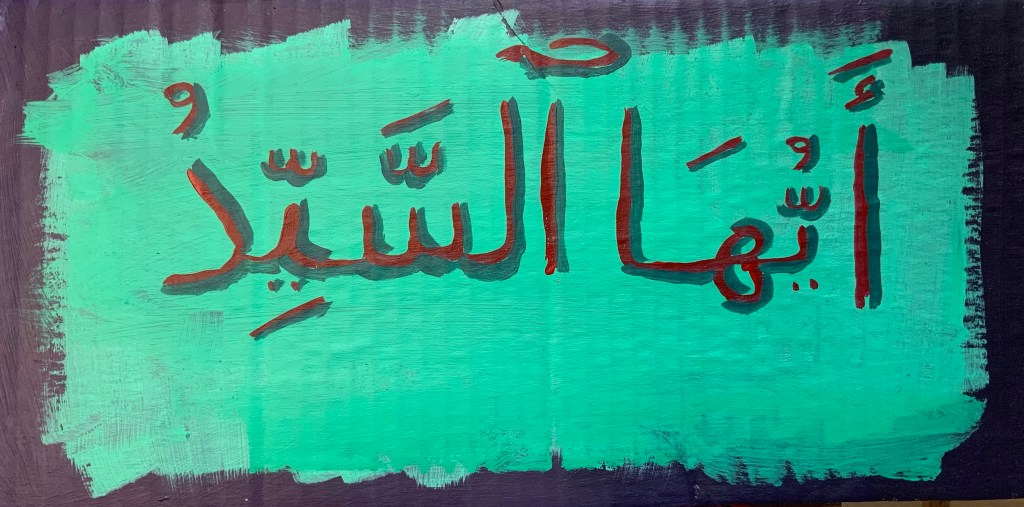 أَيُّهَا ٱلسَّيِّدُ